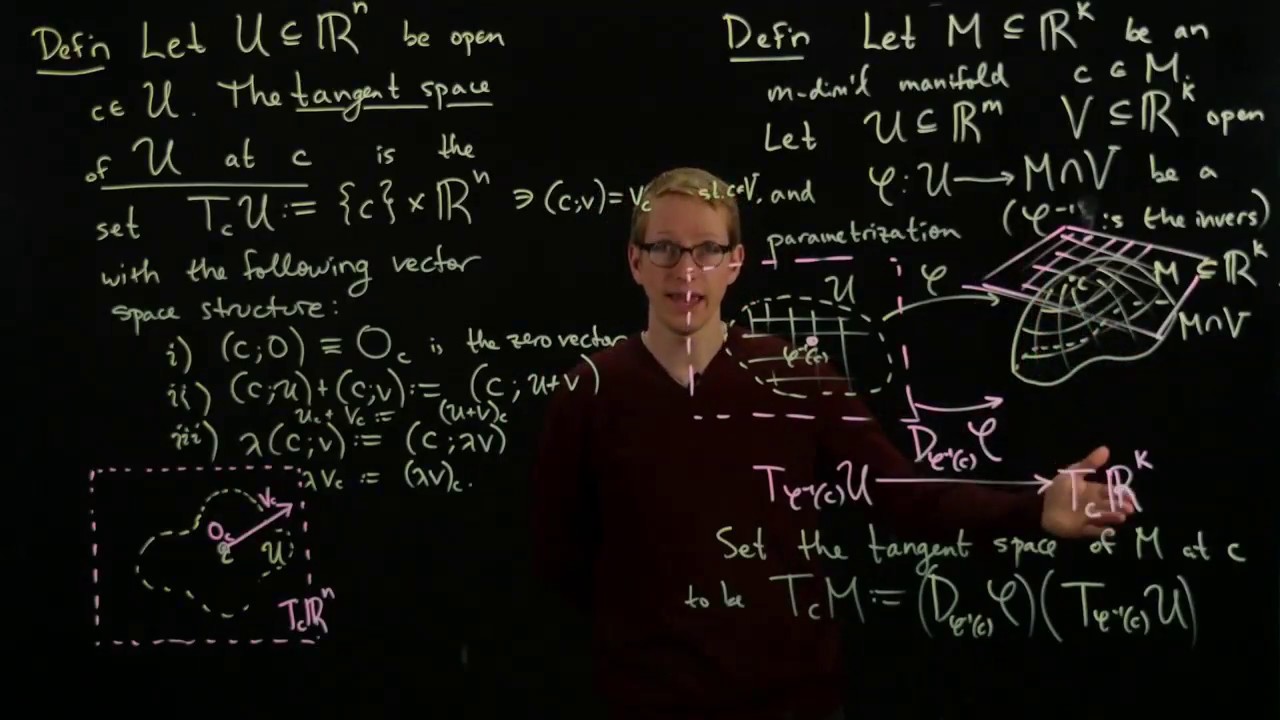 Defn Let U ⊆ ℝⁿ be open
c ∈ U. The tangent space
of U at c is the
set T_cU := {c} × ℝⁿ ∋ (c;v) = v_c
with the following vector
space structure:
i) (c;0) ≡ 0_c is the zero vector
ii) (c;u)+(c;v) := (c;u+v)
u_c + v_c := (u+v)_c
iii) λ(c;v) := (c;λv)
λv_c := (λv)_c.
v_c
0_c
c
U
T_cℝⁿ
Defn Let M ⊆ ℝᵏ be an
m-dim'l manifold c ∈ M.
Let U ⊆ ℝᵐ V ⊆ ℝᵏ open
s.t. c∈V, and φ: U → M∩V be a
parametrization (φ⁻¹ is the invers)
U
φ
c
M ⊆ ℝᵏ
M∩V
φ⁻¹(c)
D_{φ⁻¹(c)}φ
T_{φ⁻¹(c)}U → T_cℝᵏ
Set the tangent space of M at c
to be T_cM := (D_{φ⁻¹(c)}φ)(T_{φ⁻¹(c)}U)